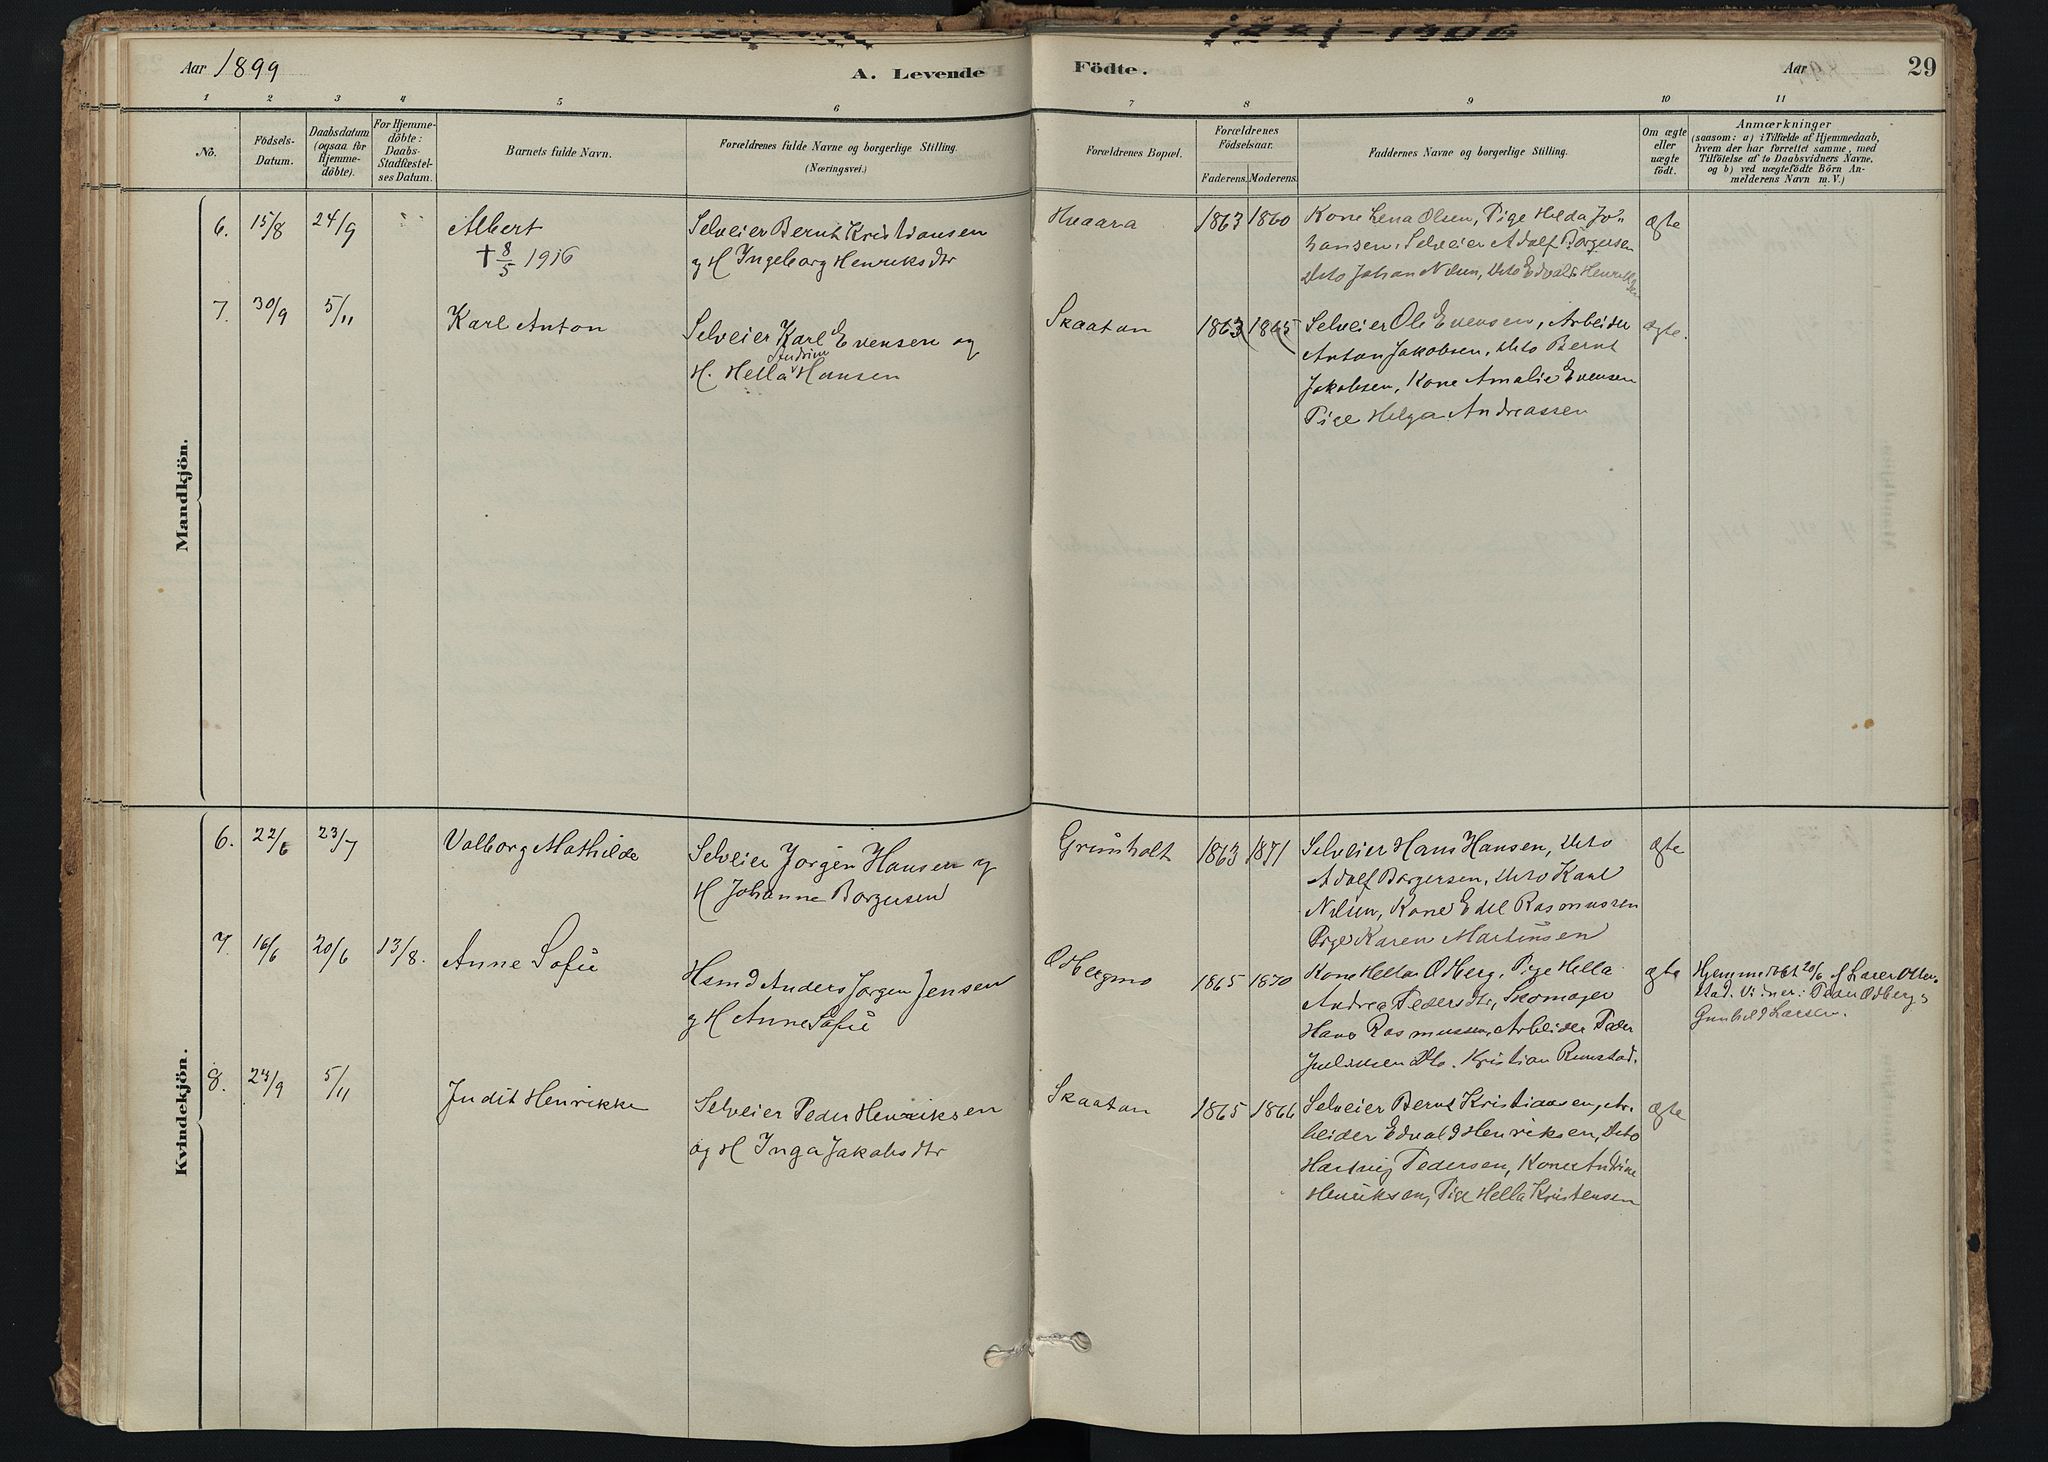 Aar 1899
A. Levende
Födte.
Aar
29
1 2 3 4 5 6 7 8 9 10 11
No.
Födsels-
Datum.
Daabsdatum
(ogsaa for
Hjemme-
döbte).
For Hjemme-
döbte:
Daabs-
Stadfæstel-
ses Datum.
Barnets fulde Navn.
Forældrenes fulde Navne og borgerlige Stilling.
(Næringsvei.)
Forældrenes Bopæl.
Forældrenes
Födselsaar.
Faderens. Moderens.
Faddernes Navne og borgerlige Stilling.
Om ægte
eller
uægte
födt.
Anmærkninger
(saasom: a) i Tilfælde af Hjemmedaab,
hvem der har forrettet samme, med
Tilföielse af to Daabsvidners Navne,
og b) ved uægtefödte Börn An-
melderens Navn m. V.)
Mandkjön.
6. 15/8 24/9 Albert
† 8/5 1916
Selveier Bernt Kristiansen
og H Ingeborg Henriksdtr
Huaara 1863 1860
Kone Lena Olsen, Pige Hilda Jo-
hansen, Selveier Adolf Borgersen
Dito Johan Nilsen, Dito Edvald Henriksen
ægte
7. 30/9 5/11 Karl Anton
Selveier Karl Evensen og
Andrine
H. Hella Hansen
Skaatan 1863 1865
Selveier Ole Evensen, Arbeider
Anton Jakobsen, Dito Bernt
Jakobsen, Kone Amalie Evensen
Pige Helga Andreassen
ægte.
Kvindekjön.
6. 22/6 23/7 Valborg Mathilde
Selveier Jörgen Hansen og
H Johanne Borgersen
Grimholt 1863 1871
Selveier Hans Hansen, Dito
Adolf Borgersen, Dito Karl
Nilsen, Kone Edel Rasmussen
Pige Karen Martinsen
ægte
7. 16/6 20/6 13/8. Anne Sofie
Hsmd Anders Jörgen Jensen
og H Anne Sofie
Odbergmo 1865 1870
Kone Hella Odberg, Pige Hella
Andrea Pedersdtr, Skomager
Hans Rasmussen, Arbeider Peder
Juliussen Dto. Kristian Rimstad.
ægte
Hjemmedöbt 20/6 af Lærer Otter-
stad. Vidner: Peder Odberg,
Gunhild Larsen.
8. 24/9 5/11 Judit Henrikke
Selveier Peder Henriksen
og H Inga Jakobsdtr
Skaatan 1865 1866
Selveier Bernt Kristiansen, Ar-
beider Edvald Henriksen, Dito
Hartvig Pedersen, Kone Andrine
Henriksen, Pige Hella Kristensen
ægte